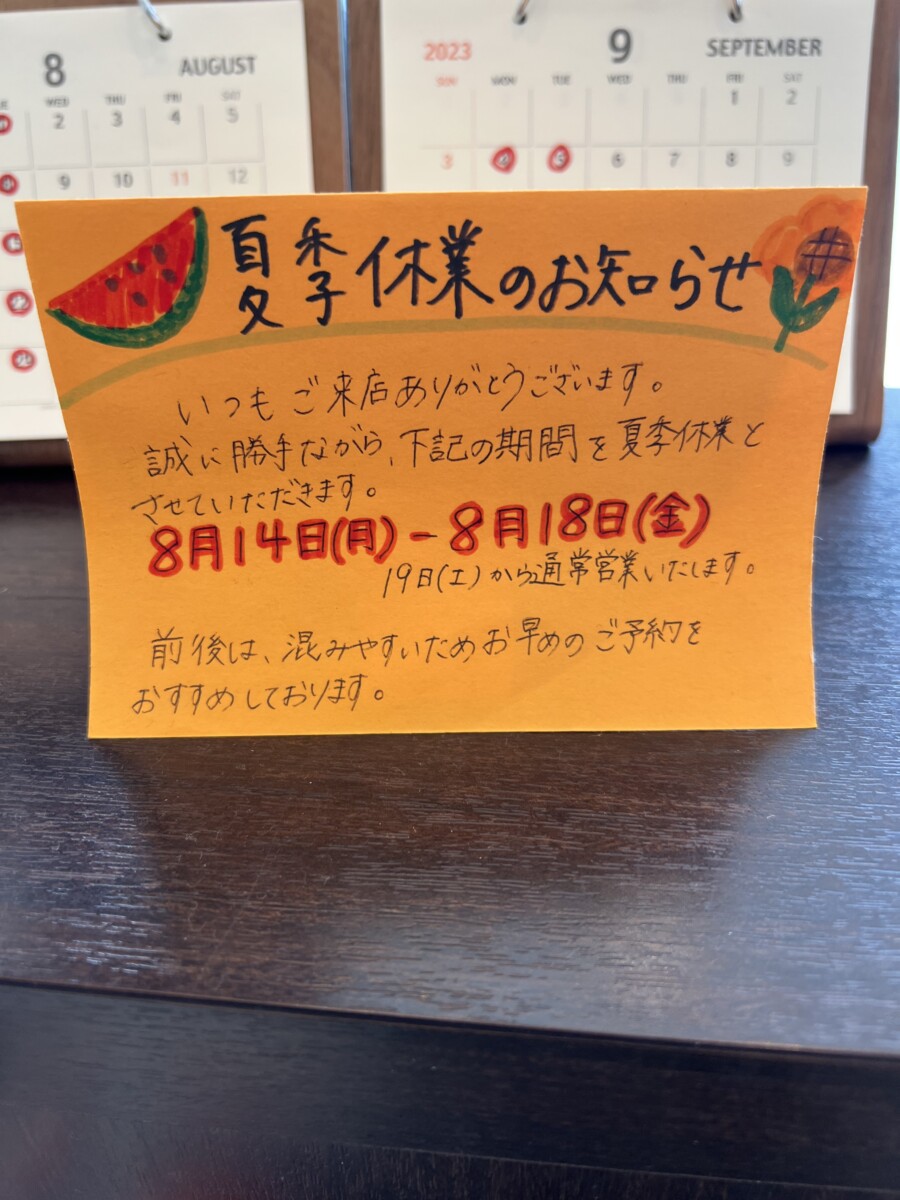 8 AUGUST
WED THU FRI SAT
2 3 4 5
9 10 11 12
2023 9 SEPTEMBER
SUN MON TUE WED THU FRI SAT
1 2
3 4 5 6 7 8 9
夏季休業のお知らせ
いつもご来店ありがとうございます。
誠に勝手ながら、下記の期間を夏季休業と
させていただきます。
8月14日(月)-8月18日(金)
19日(土)から通常営業いたします。
前後は、混みやすいためお早めのご予約を
おすすめしております。